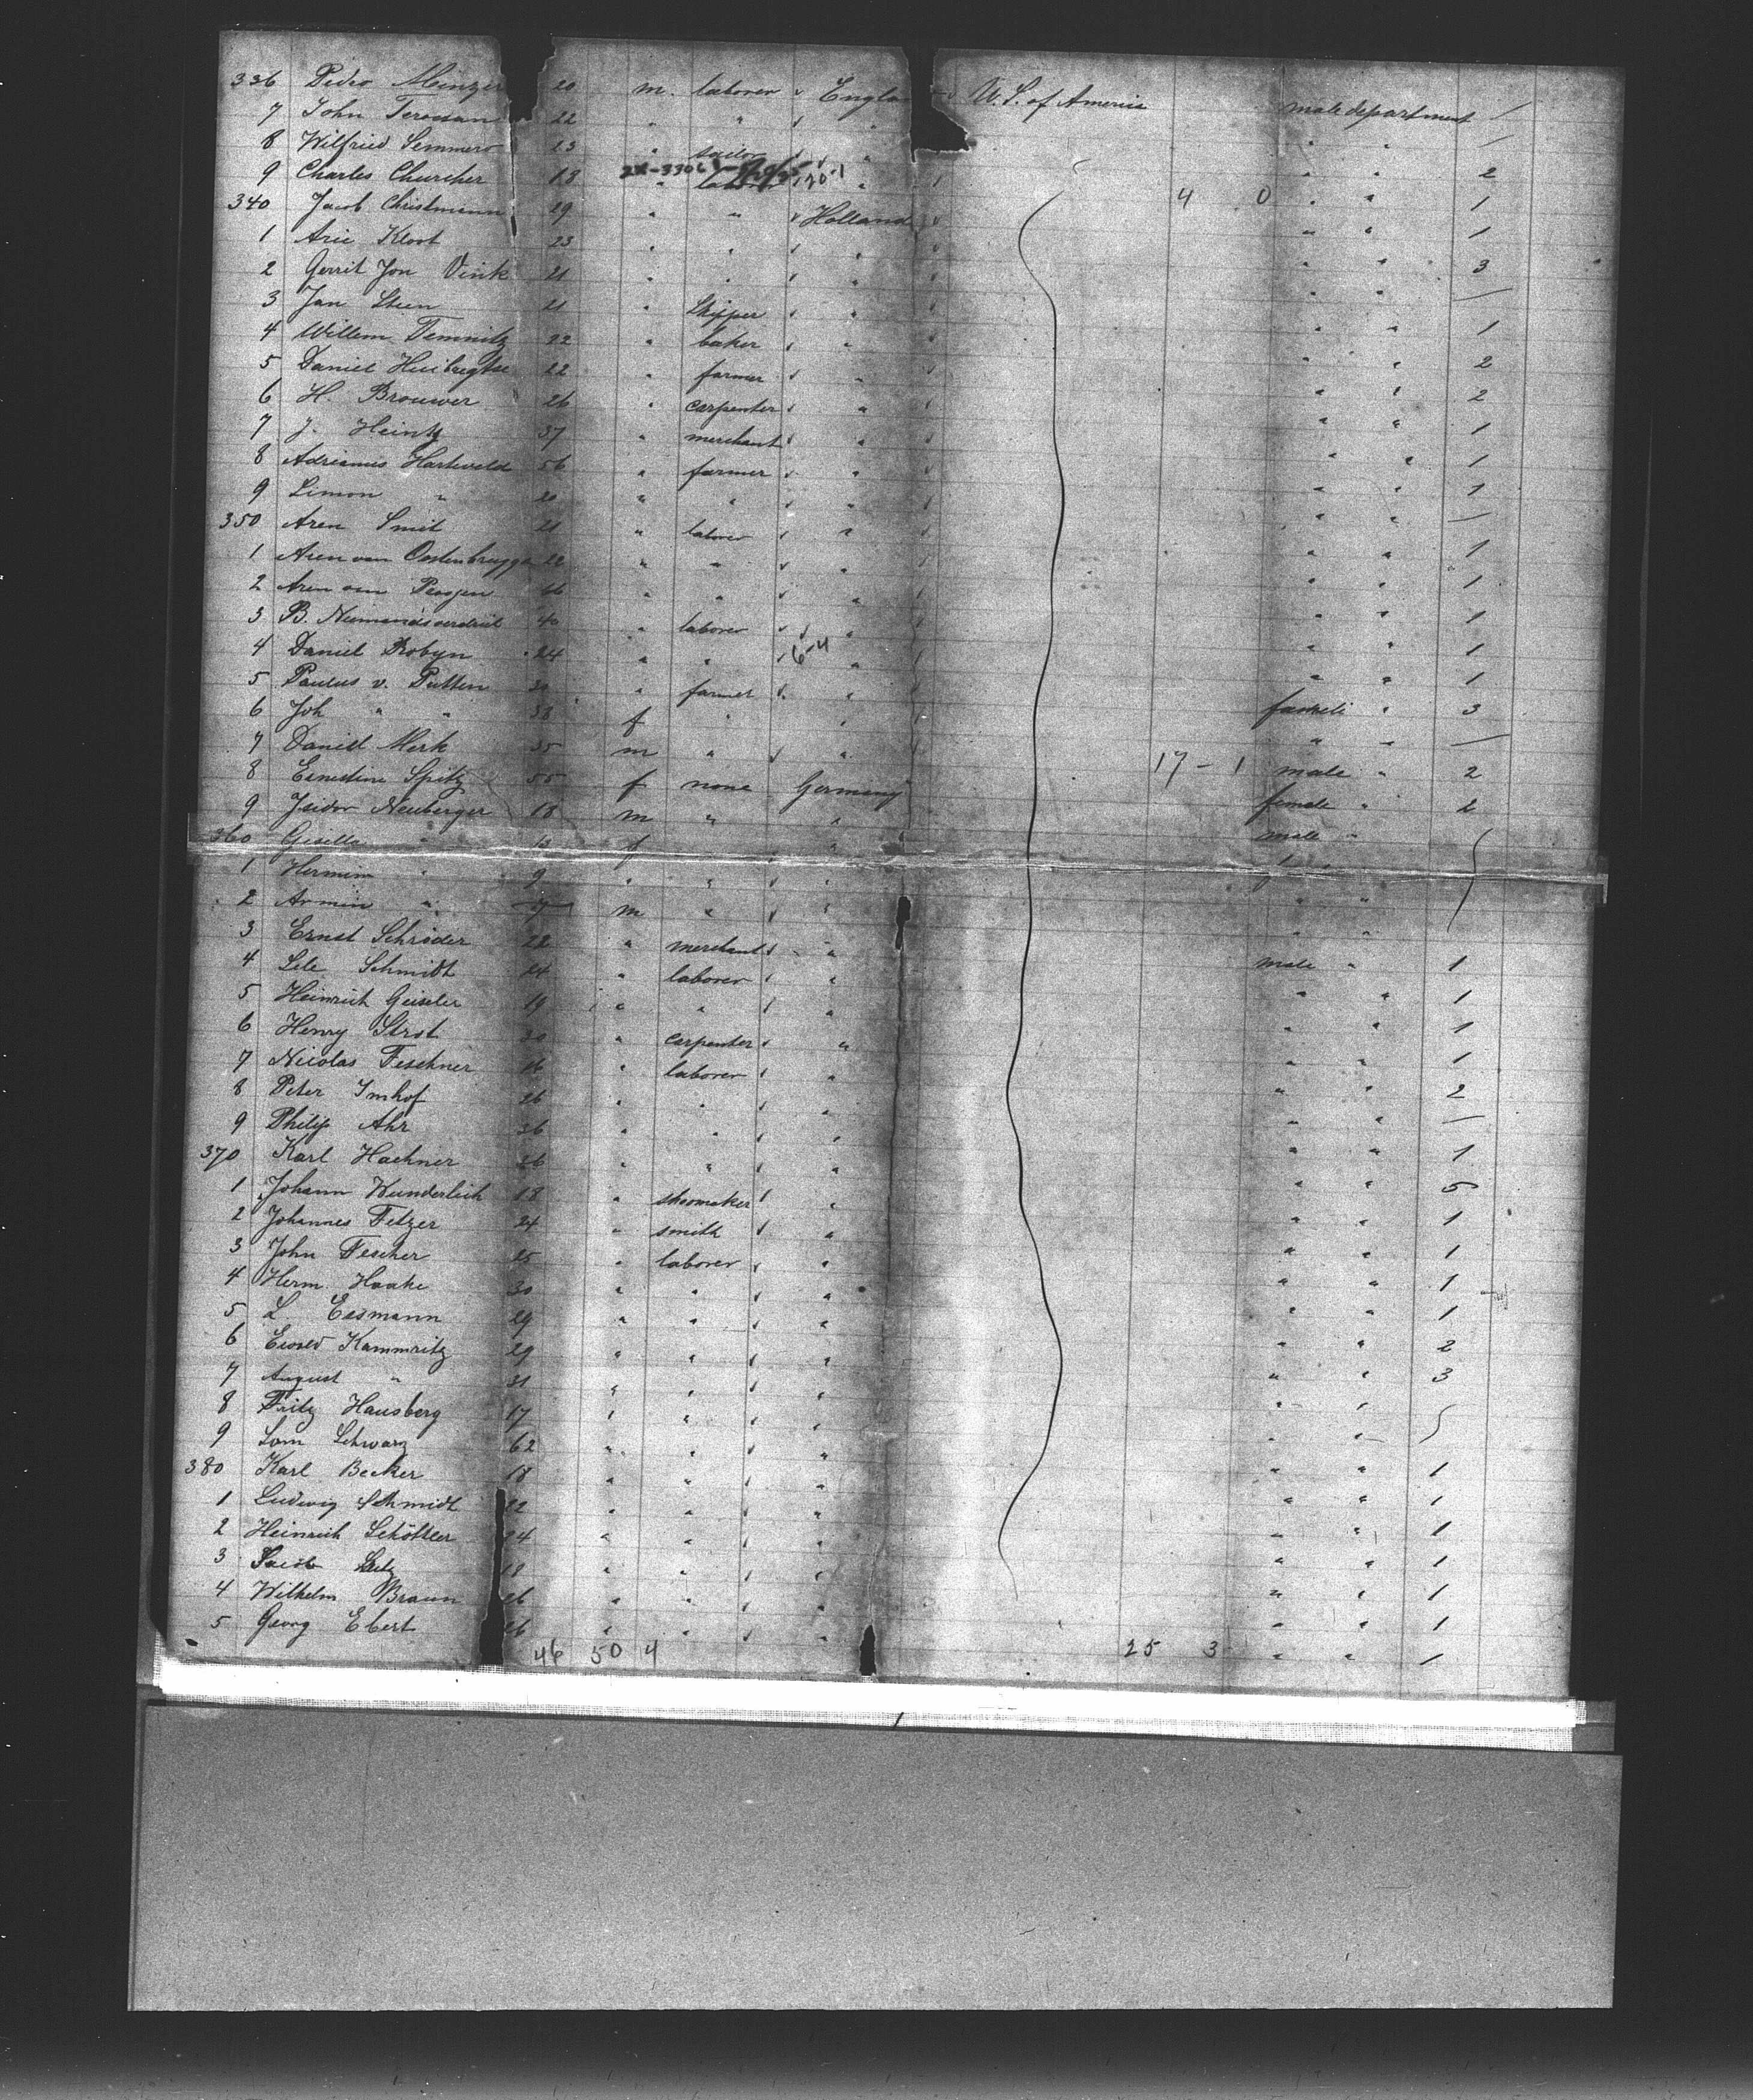 336 Pedro Menzer 20 m. laborer Engla U.S. of America male department /
7 John 22 " " " " " /
8 Wilfried Semmers 23 " sailor " " " 2
9 Charles Churcher 18 " laborer " 4 0 " " 1
340 Jacob Christmann 29 " " Holland " " 1
1 Arie Kloot 23 " " " " " 3
2 Gerrit Jan Vink 21 " " " " "
3 Jan Steen 21 " Skipper " " " 1
4 Willem Temnitz 22 " baker " " " 2
5 Daniel Huibregtse 22 " farmer " " " 2
6 H. Brouwer 26 " carpenter " " " 1
7 J. Heintz 37 " merchant " " " 1
8 Adrianus Harteveld 56 " farmer " " " 1
9 Simon " 20 " " " " "
350 Aren Smit 21 " laborer " " " 1
1 Aren van Oostenbrugge 22 " " " " " 1
2 Aren van 46 " " " " " 1
3 B. Niemandsverdriet 40 " laborer " " " 1
4 Daniel Robyn 24 " " 6-4 " " " 1
5 Paulus v. Putten 30 " farmer " 3
6 Joh " " 38 f " "
7 Daniel Merk 35 m " " 17 - 1 male " 2
8 Ernestine Spitz 55 f none Germany female " 2
9 Isidor Neuberger 18 m " " male "
360 Gisella " f "
1 Hermin " 9 " " " " "
2 Armin " 7 m " " " "
3 Ernst Schröder 22 " merchant " male " 1
4 Schmidt 24 " laborer " " " 1
5 Heinrich Geiseler 19 " " " " " 1
6 Henry Strot 30 " carpenter " " " 1
7 Nicolas Feschner 16 " laborer " " " 2
8 Peter Imhof 26 " " " " "
9 Philip Ahr 26 " " " " " 1
370 Karl Haehner 26 " " " " " 5
1 Johann Wunderlich 18 " shoemaker " " " 1
2 Johannes Fetzer 24 " smith " " " 1
3 John Fescher 25 " laborer " " " 1
4 Herm Haake 30 " " " " " 1
5 L Eesmann 29 " " " " " 2
6 Ewald Kammritz 29 " " " " " 3
7 August " 31 " " " " "
8 Fritz Hausberg 17 " " " " "
9 Sam Schwarz 62 " " " " " 1
380 Karl Becker 18 " " " " " 1
1 Ludwig Schmidt 22 " " " " " 1
2 Heinrich Schöttler 24 " " " " " 1
3 Jacob 18 " " " " " 1
4 Wilhelm Braun 26 " " " " " 1
5 Georg Ebert 26 " " " " " 1
46 50 4 25 3